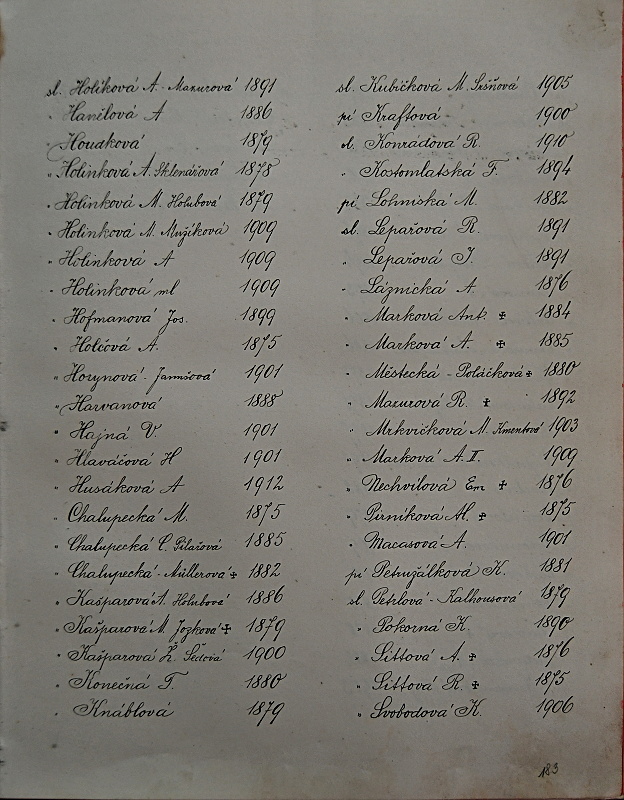 sl. Holíková A. Mazurová 1891
" Hanilová A 1886
Houdková 1879
" Holinková A. Sklenářová 1878
" Holinková M. Holubová 1879
" Holinková M. Mužíková 1909
" Holinková A 1909
" Holinková ml 1909
" Hofmanová Jos. 1899
" Holcová A. 1875
" Horynová - Janušová 1901
" Harvanová 1888
" Hajná V. 1901
" Hlaváčová H 1901
" Husáková A 1912
" Chalupecká M. 1875
" Chalupecká C. Pilařová 1885
" Chalupecká - Müllerová ✠ 1882
" Kašparová A. Holubová 1886
" Kašparová M. Jozková ✠ 1879
" Kašparová K. Šedová 1900
" Konečná T. 1880
" Knáblová 1879
sl. Kubíčková M. Sršňová 1905
pí Kraftová 1900
sl. Konrádová R. 1910
" Kostomlatská F. 1894
pí Lohniská M. 1882
sl. Lepařová R. 1891
" Lepařová J. 1891
" Láznická A 1876
" Marková Ant. ✠ 1884
" Marková A. ✠ 1885
" Městecká - Poláčková ✠ 1880
" Mazurová R. ✠ 1892
" Mrkvičková M. Kmentová 1903
" Marková A. II. 1909
" Nechvílová Em ✠ 1876
" Pírníková M. ✠ 1875
" Macasová A. 1901
pí Petružálková K. 1881
sl. Petrlová - Kalhousová 1879
" Pokorná K. 1890
" Sittová A. ✠ 1876
" Sittová R. ✠ 1875
" Svobodová K. 1906
183